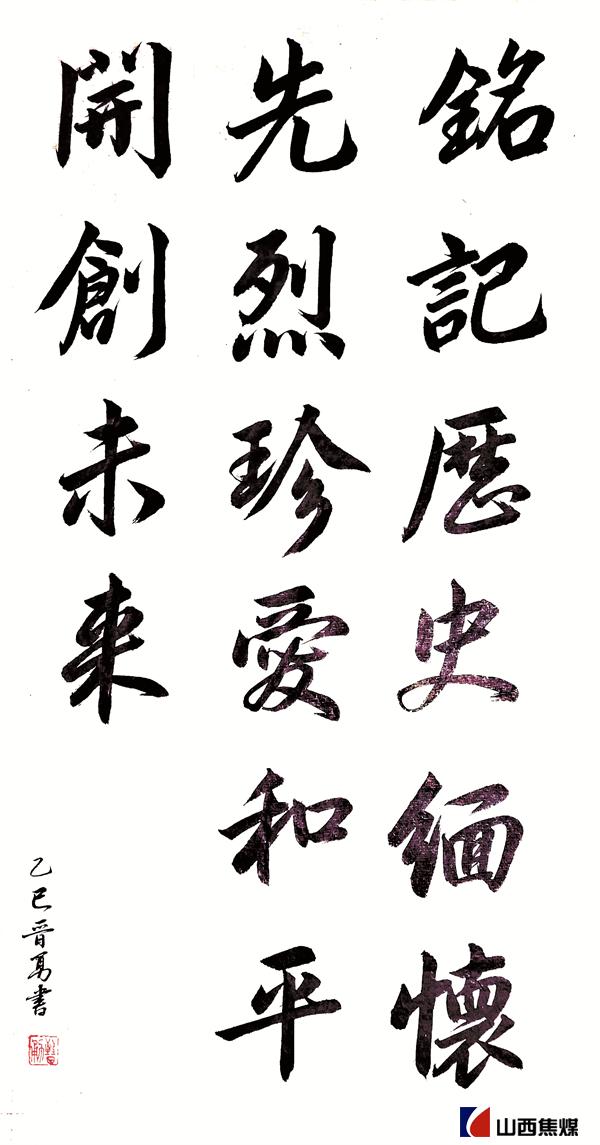 銘記歷史緬懷
先烈珍愛和平
開創未来
乙巳晋勇書
山西焦煤